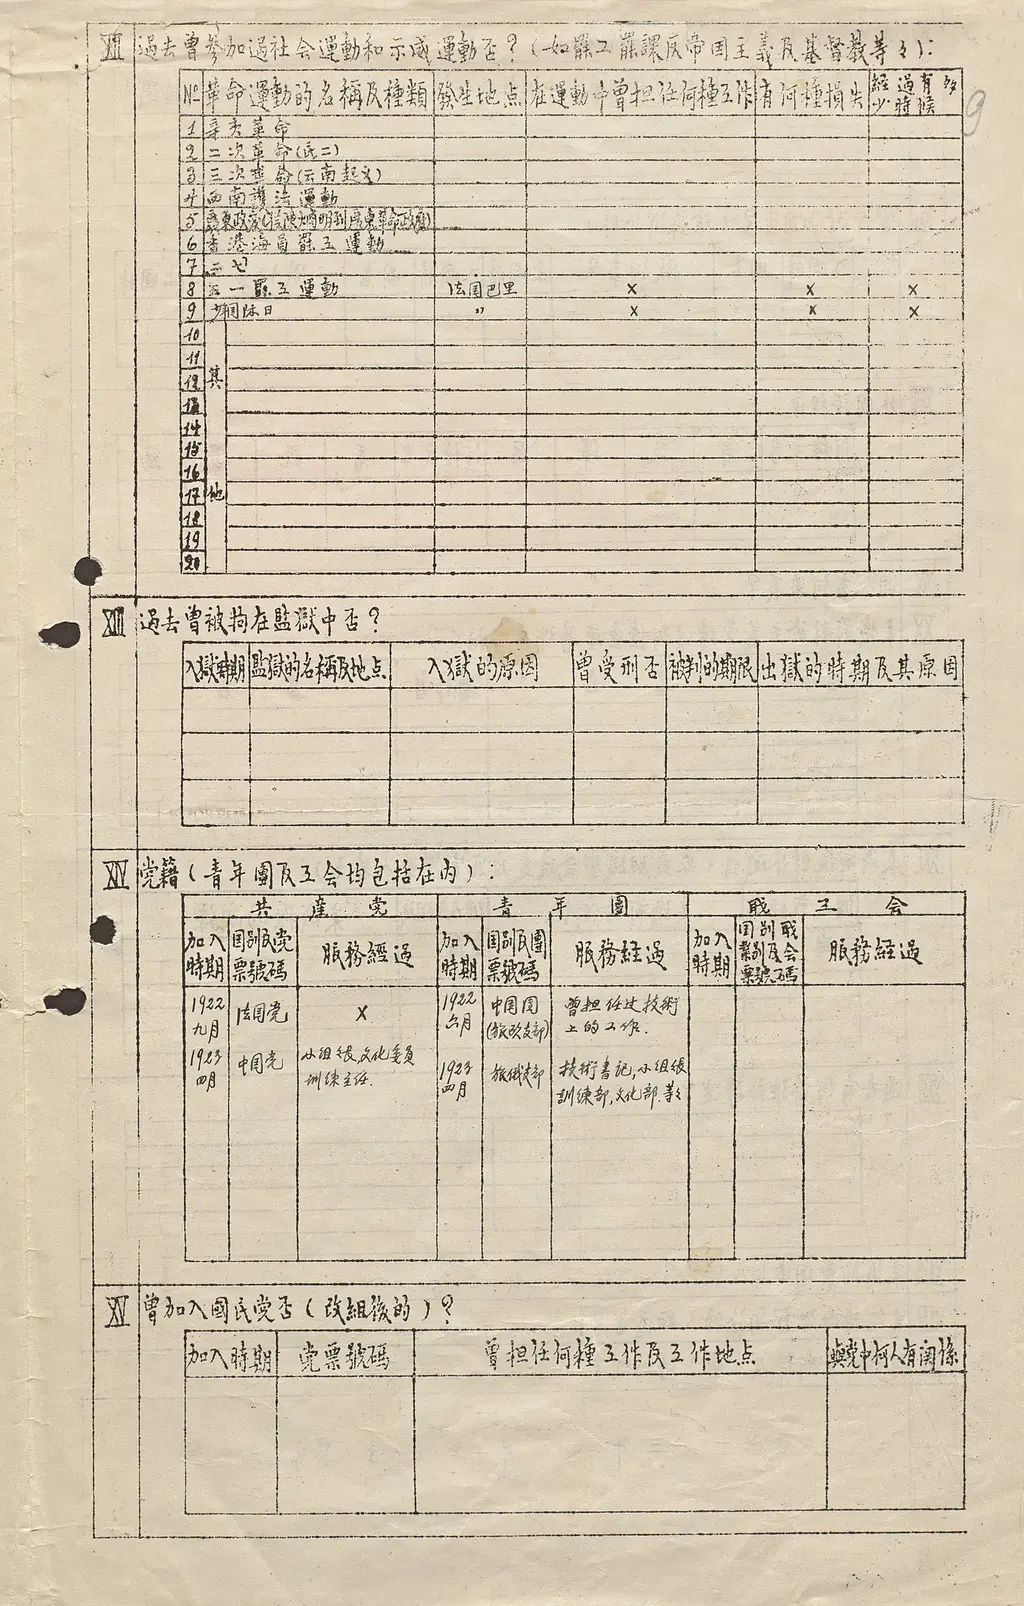 XII 過去曾參加過社会運動和示威運動否？（如罷工罷課反帝国主義及基督教等々）：
9
№ 革命運動的名稱及種類 發生地点 在運動中曾担任何種工作 有何種損失 経過有多少時候
1 辛亥革命
2 二次革命(民二)
3 三次革命(云南起义)
4 西南護法運動
5
6 香港海員罷工運動
7 二七
8 五一罷工運動 法国巴里 x x x
9 少年国际日 〃 x x x
10
11
12 其
13
14
15
16
17 他
18
19
20
XIII 過去曾被拘在監獄中否？
入獄時期 監獄的名稱及地点 入獄的原因 曾受刑否 被判的期限 出獄的時期及其原因
XIV 党籍（青年團及工会均包括在內）：
共產党 青年團 職工会
加入時期 国别及党票號碼 服務經過 加入時期 国别及團票號碼 服務經過 加入時期 国别職業别及会票號碼 服務経過
1922九月 法国党 x 1922六月 中国团(旅欧支部) 曾担任过技術上的工作.
1923四月 中国党 小组長,文化委員訓練主任. 1923四月 旅俄支部 技術書记,小组長訓練部,文化部.等々
XV 曾加入國民党否（改組後的）？
加入時期 党票號碼 曾担任何種工作及工作地点 與党中何人有関係